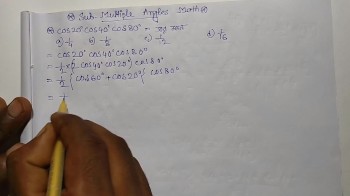 Sub Multiple Angles Math
cos20° cos40° cos80° -
a) 1/4 b) 1/8 c) 1/2 d) 1/6
= cos20° cos40° cos80°
= 1/2 (2 cos40° cos20°) cos80°
= 1/2 { cos60° + cos20° } cos80°
= 1